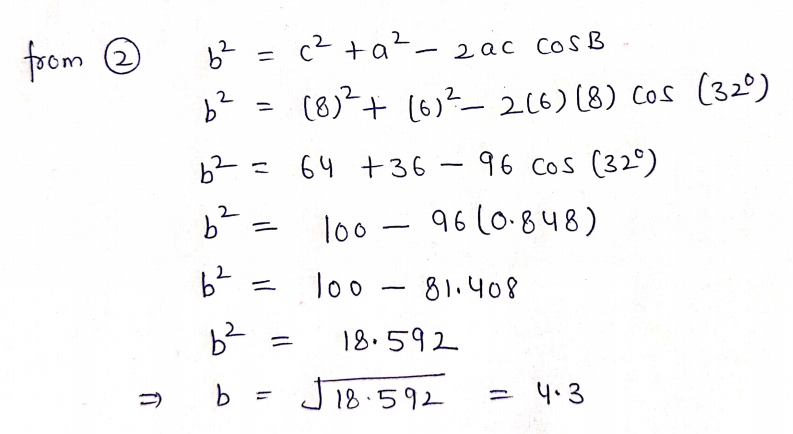 from ② b² = c² + a² - 2ac cosB
b² = (8)² + (6)² - 2(6)(8) cos (32°)
b² = 64 + 36 - 96 cos (32°)
b² = 100 - 96(0.848)
b² = 100 - 81.408
b² = 18.592
⇒ b = √18.592 = 4.3